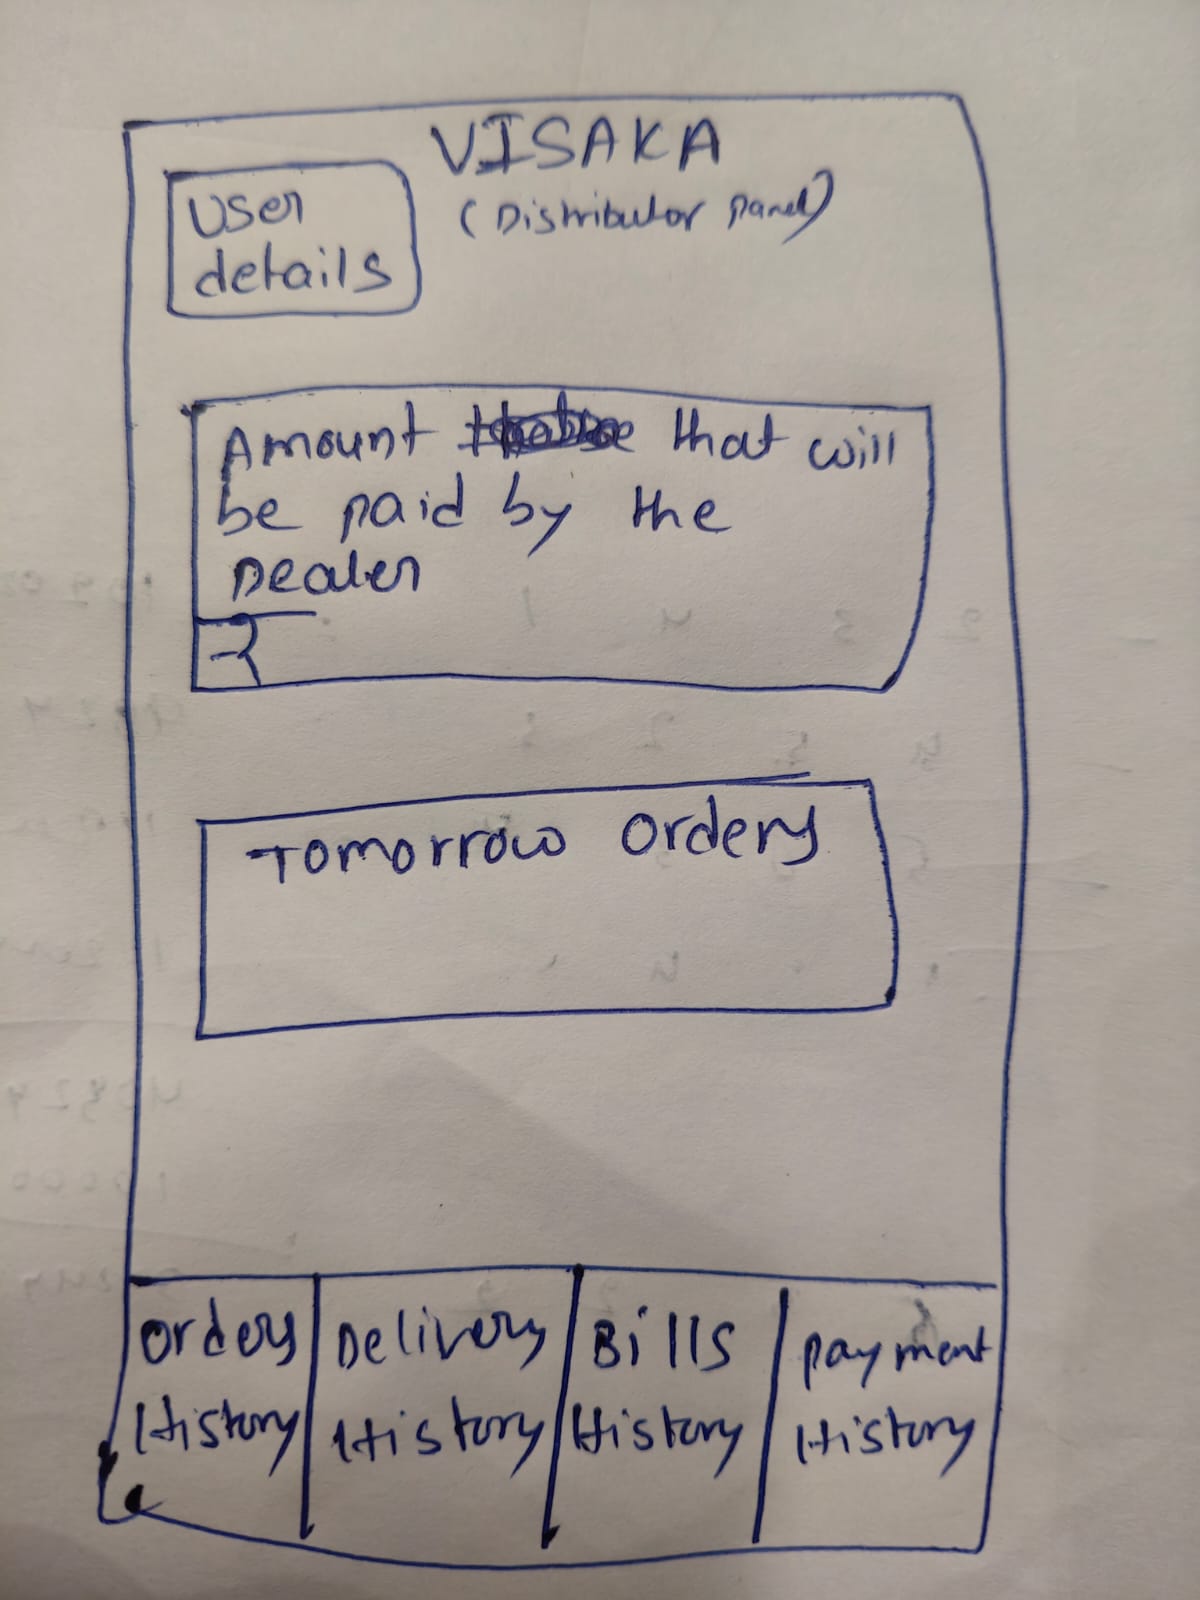 VISAKA
(Distributor panel)
User
details
Amount that will
be paid by the
Dealer
Tomorrow Orders
Orders
History
Delivery
History
Bills
History
payment
History